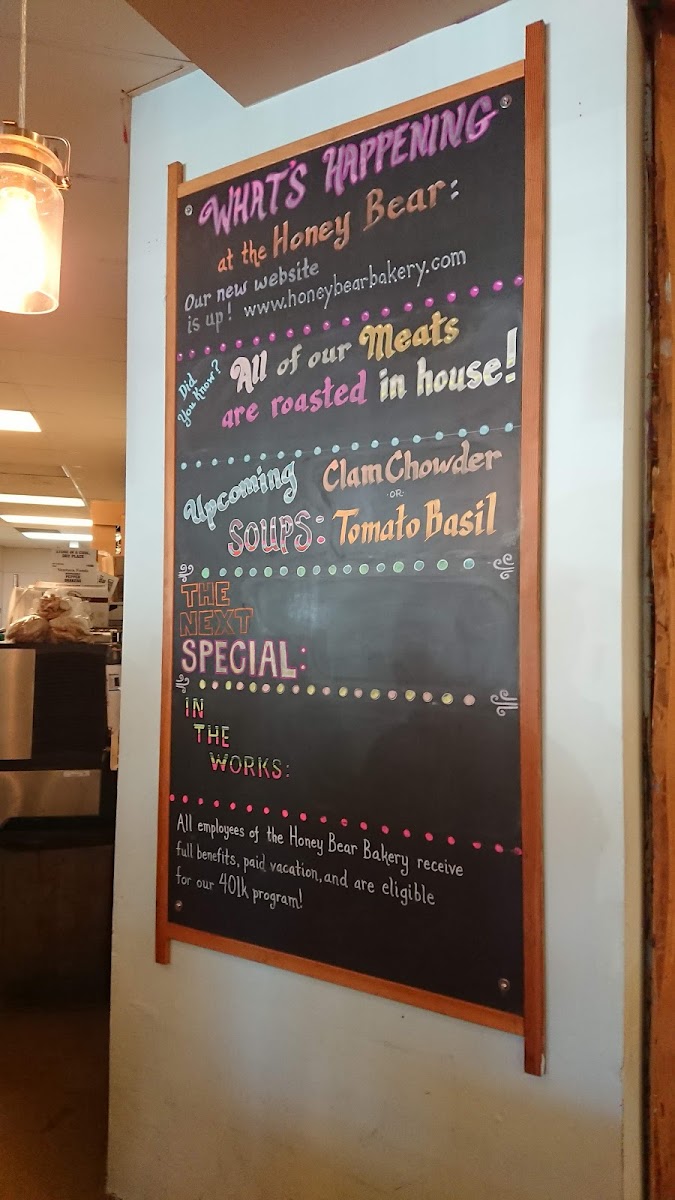 WHAT'S HAPPENING
at the Honey Bear:
Our new website
is up! www.honeybearbakery.com
Did
You Know?
All of our Meats
are roasted in house!
Upcoming
SOUPS:
Clam Chowder
OR
Tomato Basil
THE
NEXT
SPECIAL:
IN
THE
WORKS:
All employees of the Honey Bear Bakery receive
full benefits, paid vacation, and are eligible
for our 401k program!